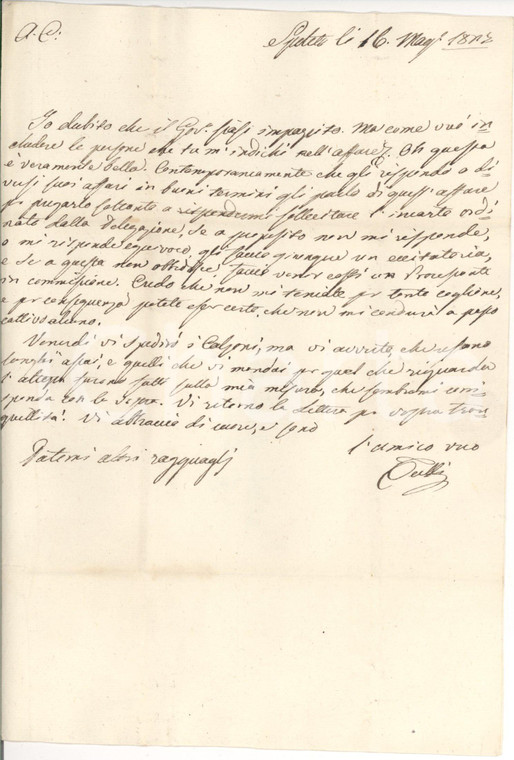 A. C.
Spoleto li 16. Magg. 18
Io dubito che il Gov. siasi impazzito. Ma come vuò in=
cludere le persone che tu m'indichi nell'affare? Oh questa
è veramente bella. Contemporaneamente che gli rispondo a di
versi suoi affari in buoni termini gli parlo di quest'affare
per pregarlo soltanto a rispondermi sollecitare l'incarto ordi=
nato dalla Delegazione, se a proposito non mi risponde,
o mi risponde equivoco, gli faccio giungere un eccitatoria,
e se a questa non obbedisce, faccio venir costì un Processante
in commissione. Credo che non mi teniate per tanto coglione,
e per conseguenza potete esser certo, che non mi condurrà a passo
cattivo alcuno.
Venerdì vi spedirò i Calzoni, ma vi avverto, che usano
lunghi assai, e quelli che vi mandai per quel che riguarda
l'altezza furono fatti sulla mia misura, che sembrami corri
sponda con la Vostra. Vi ritorno la Lettera per vostra tran=
quillità. Vi abbraccio di cuore, e sono
Datemi altri ragguagli
l'amico vero